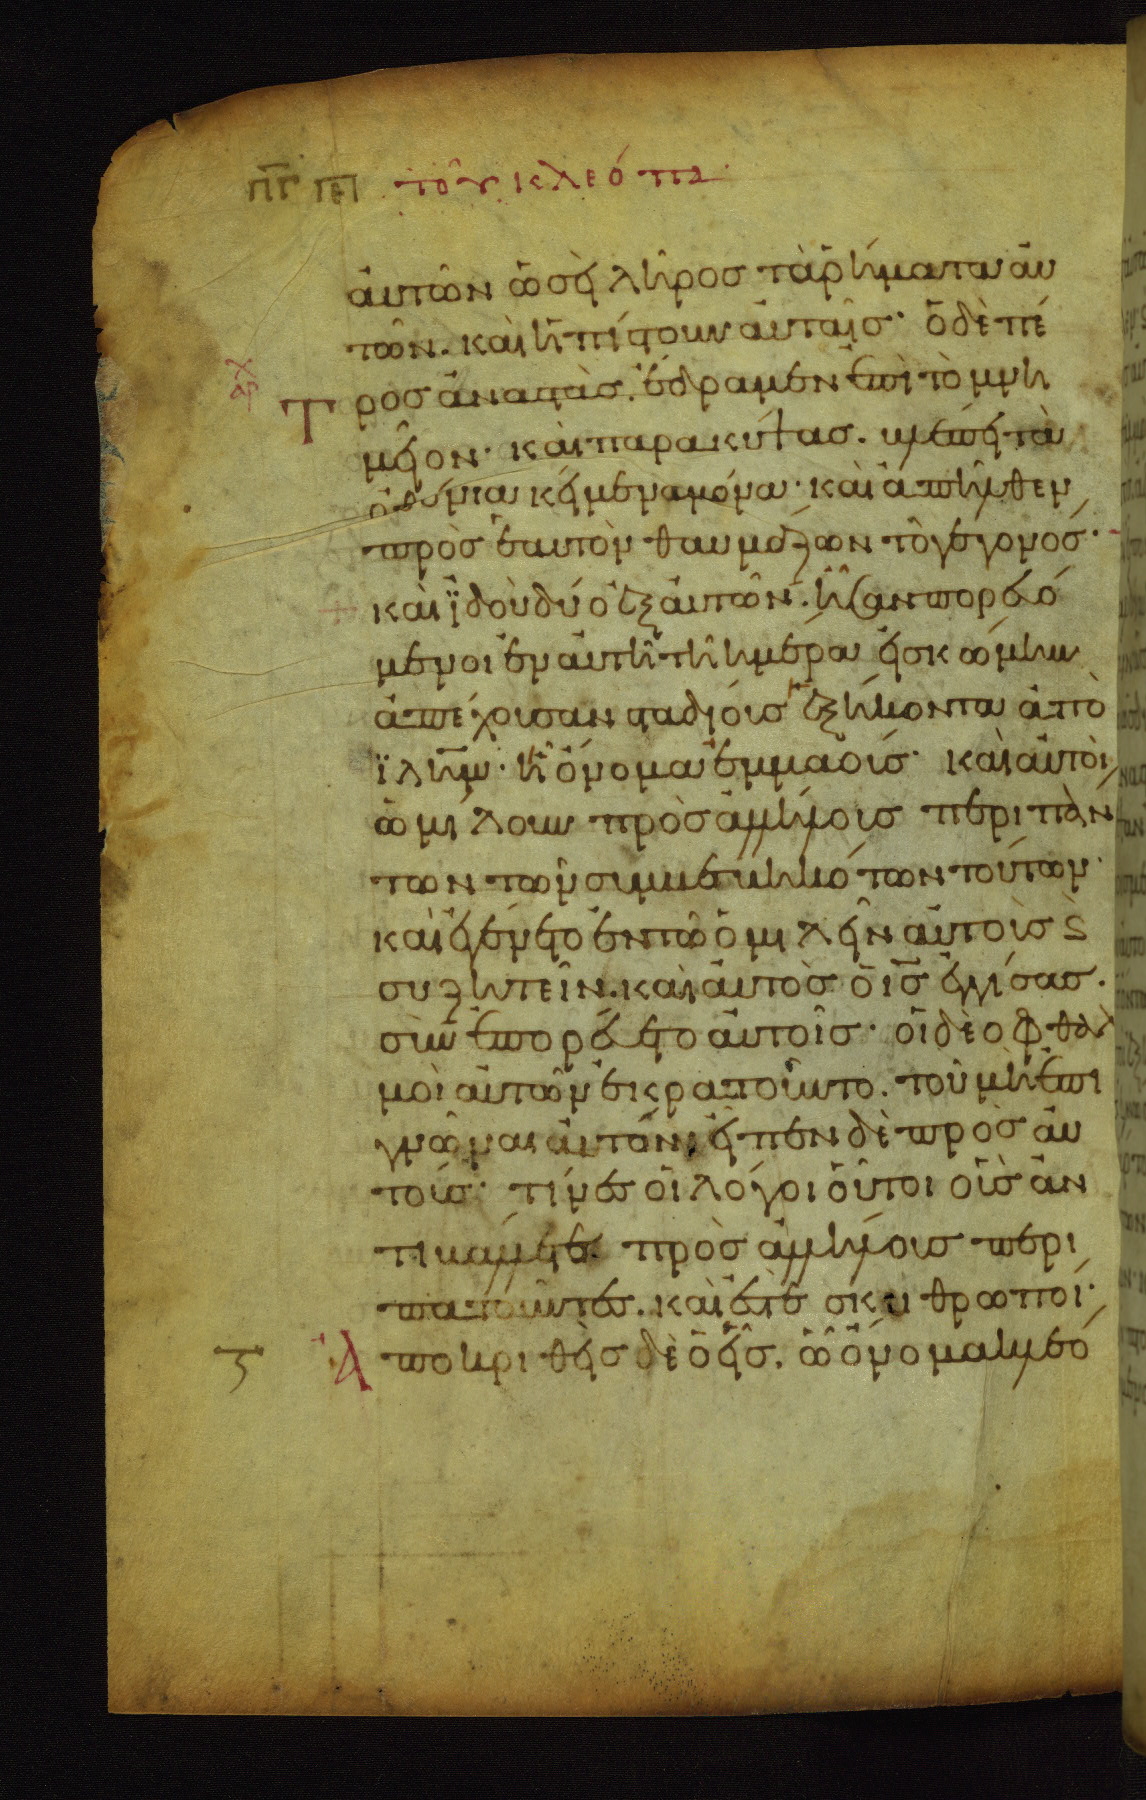 πγ πε τοῦ κλεόπα
αὐτῶν ὡσεὶ λῆρος τὰ ῥήματα αὐ
τῶν. καὶ ἠπίστουν αὐταῖς· ὁ δὲ πέ
χ αρ
τρος ἀναστὰς. ἔδραμεν ἐπὶ τὸ μνη
μεῖον· καὶ παρακύψας. βλέπει τὰ
ὀθόνια κείμενα μόνα· καὶ ἀπῆλθεν
πρὸς ἑαυτὸν θαυμάζων τὸ γεγονός·
καὶ ἰδοὺ δύο ἐξ αὐτῶν. ἦσαν πορευό
μενοι ἐν αὐτῇ τῇ ἡμέρα εἰς κώμην
ἀπέχουσαν σταδίους ἑξήκοντα ἀπὸ
ϊλημ· ἧ ὄνομα ἐμμαούς· καὶ αὐτοὶ
ὡμίλουν πρὸς ἀλλήλους περὶ πάν
των τῶν συμβεβηκότων τούτων·
καὶ ἐγένετο ἐν τῶ ὁμιλεῖν αὐτοὺς ϗ
συζητεῖν. καὶ αὐτὸς ὁ ις ἐγγίσας.
συνεπορεύετο αὐτοῖς· οἱ δὲ ὀφθαλ
μοὶ αὐτῶν ἐκρατοῦντο. τοῦ μὴ ἐπι
γνῶναι αὐτόν· εἶπεν δὲ πρὸς αὐ
τούς· τίνες οἱ λόγοι οὗτοι οὓς ἀν
τιβάλλετε πρὸς ἀλλήλους περι
πατοῦντες. καὶ ἐστὲ σκυθρωποί·
ἀποκριθεὶς δὲ ὁ εἷς. ὧ ὄνομα κλεό